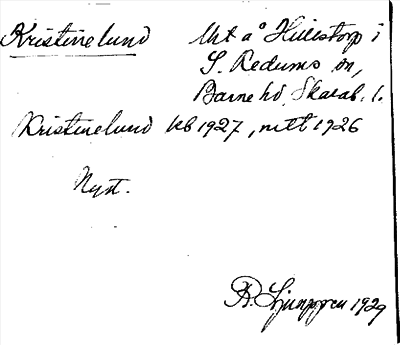 Kristinelund
Uht å Hulestorp i
S. Redums sn,
Barne hd, Skarab. l.
Kristinelund kb 1927, mtl 1926
Nyst.
R. Ljunggren 1929